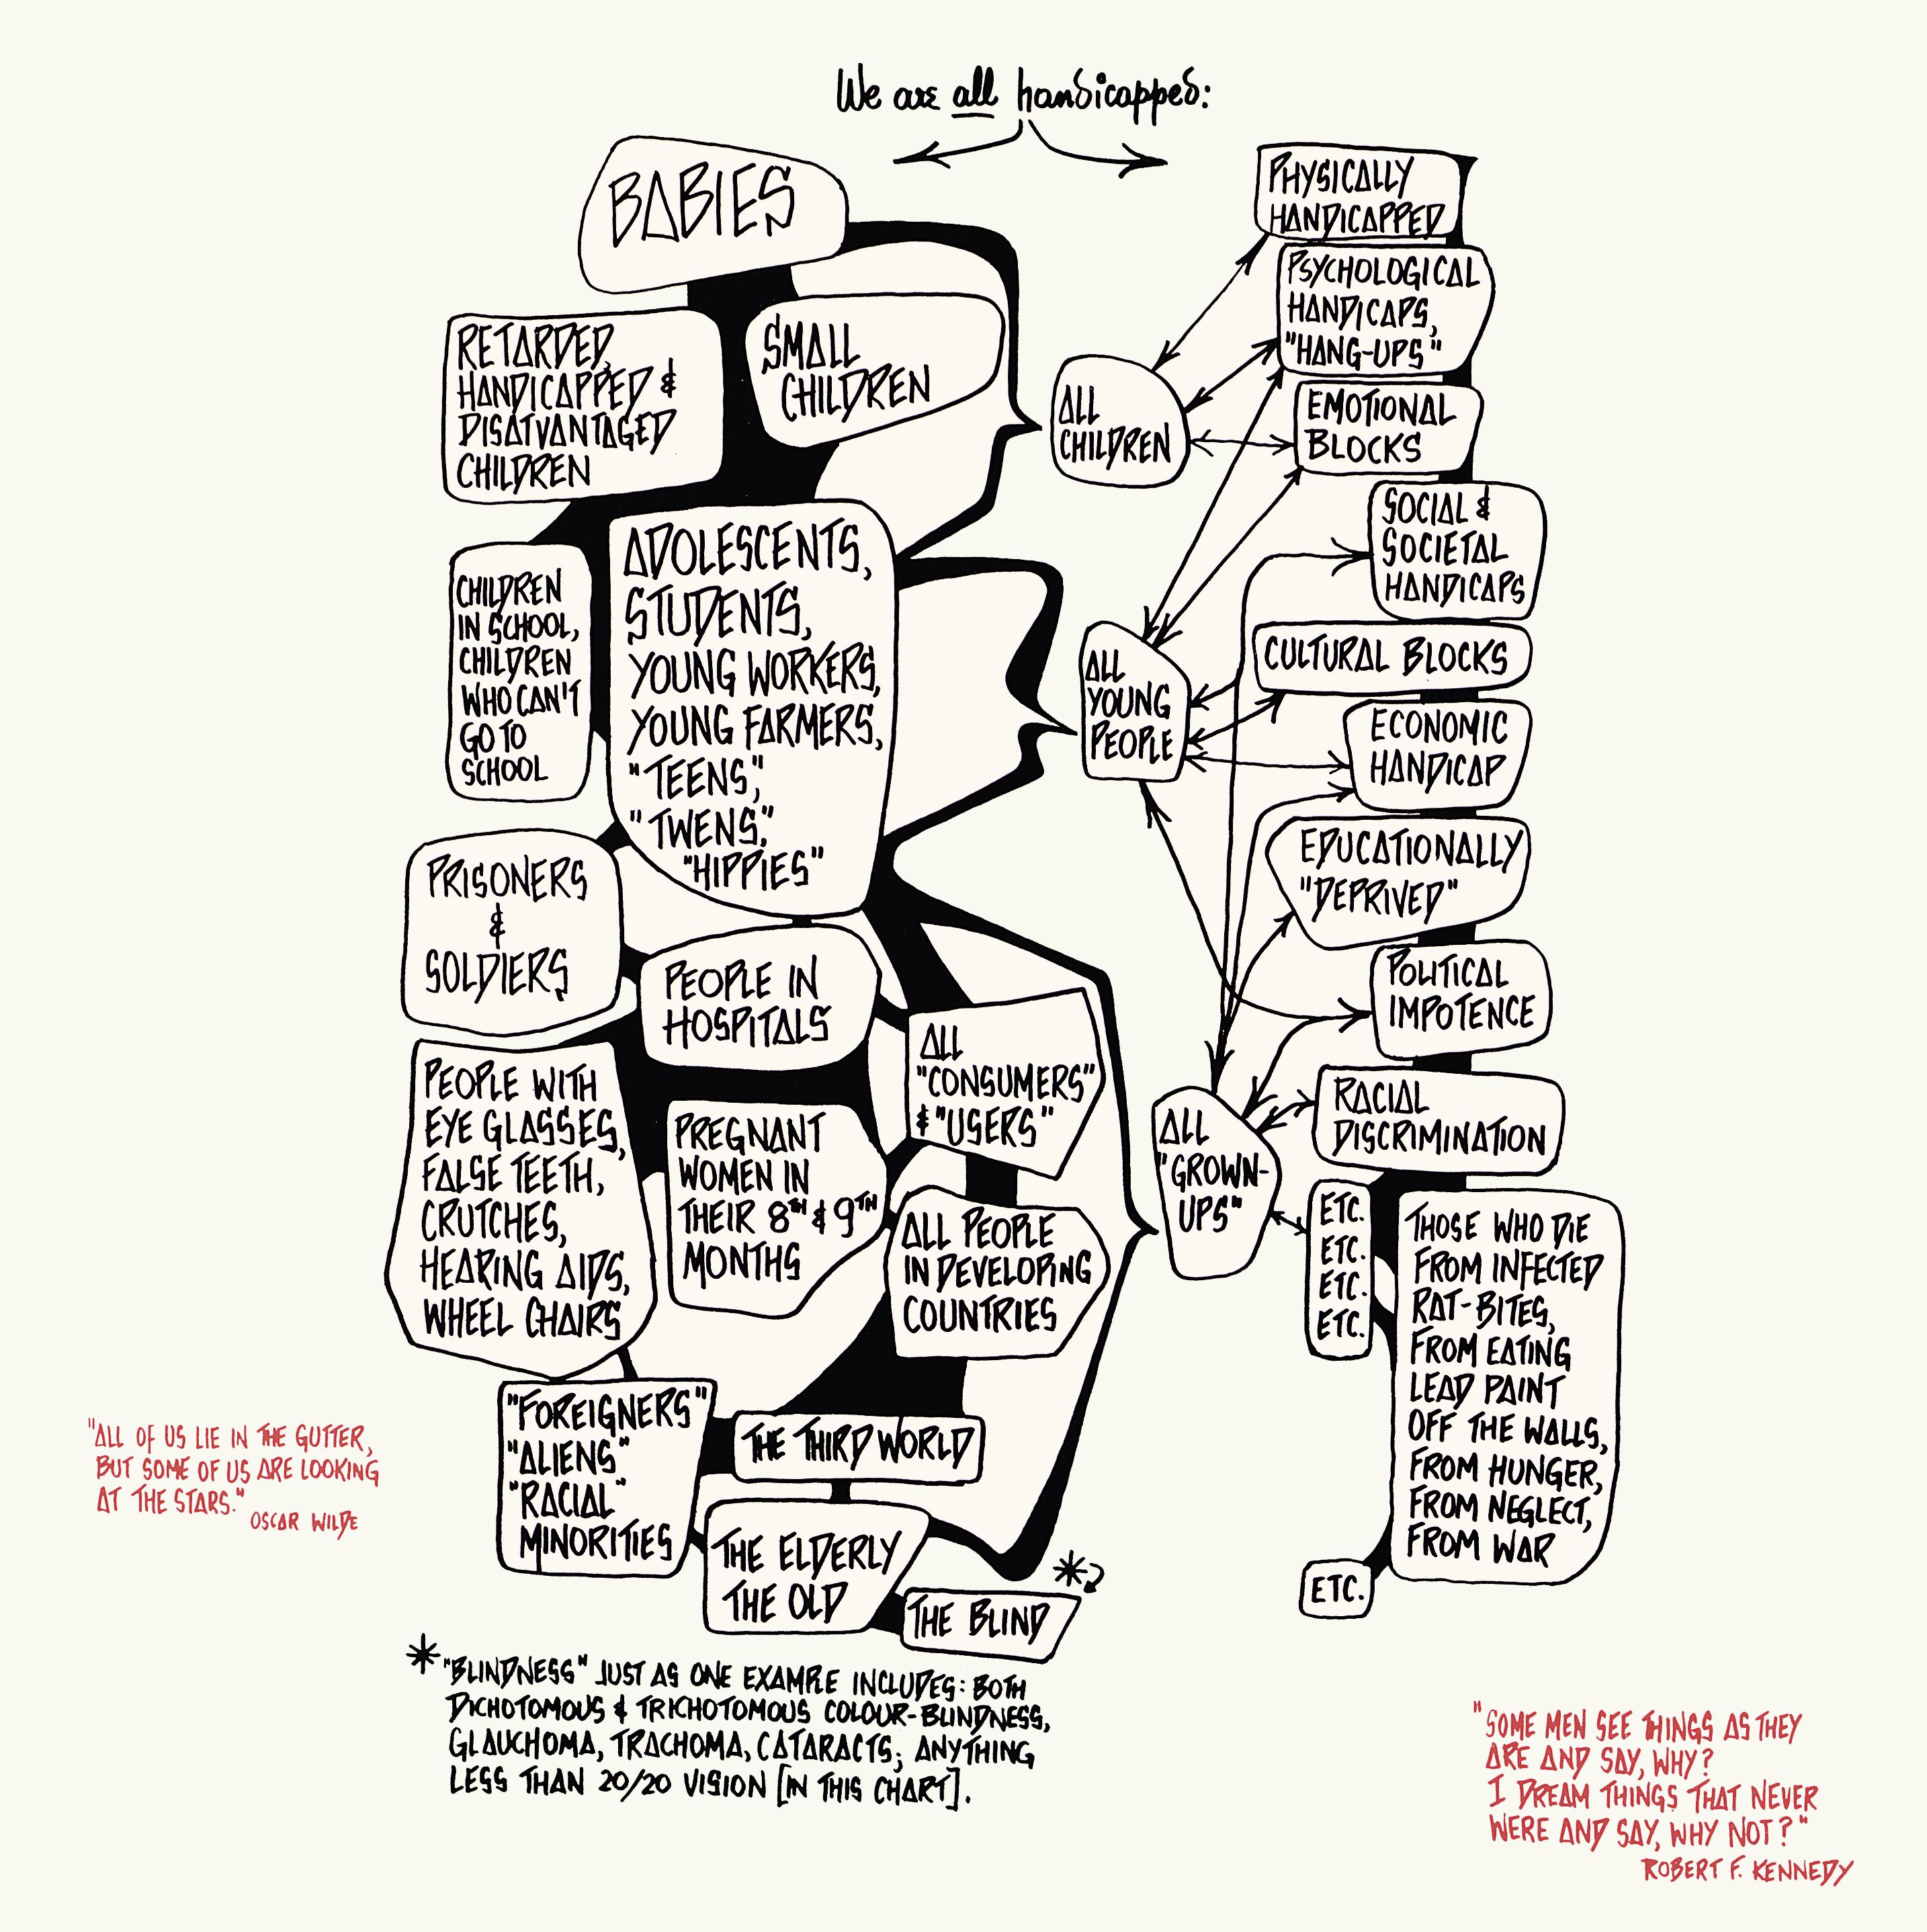 We are all handicapped:
BABIES
RETARDED,
HANDICAPPED &
DISATVANTAGED
CHILDREN
SMALL
CHILDREN
CHILDREN
IN SCHOOL,
CHILDREN
WHO CAN'T
GO TO
SCHOOL
ADOLESCENTS,
STUDENTS,
YOUNG WORKERS,
YOUNG FARMERS,
"TEENS",
"TWENS",
"HIPPIES"
PRISONERS
&
SOLDIERS
PEOPLE IN
HOSPITALS
PEOPLE WITH
EYE GLASSES,
FALSE TEETH,
CRUTCHES,
HEARING AIDS,
WHEEL CHAIRS
PREGNANT
WOMEN IN
THEIR 8TH & 9TH
MONTHS
ALL
"CONSUMERS"
& "USERS"
ALL PEOPLE
IN DEVELOPING
COUNTRIES
"FOREIGNERS"
"ALIENS"
"RACIAL"
MINORITIES
THE THIRD WORLD
THE ELDERLY
THE OLD
THE BLIND
*
ALL
CHILDREN
ALL
YOUNG
PEOPLE
ALL
"GROWN-
UPS"
PHYSICALLY
HANDICAPPED
PSYCHOLOGICAL
HANDICAPS,
"HANG-UPS"
EMOTIONAL
BLOCKS
SOCIAL &
SOCIETAL
HANDICAPS
CULTURAL BLOCKS
ECONOMIC
HANDICAP
EDUCATIONALLY
"DEPRIVED"
POLITICAL
IMPOTENCE
RACIAL
DISCRIMINATION
ETC.
ETC.
ETC.
ETC.
THOSE WHO DIE
FROM INFECTED
RAT-BITES,
FROM EATING
LEAD PAINT
OFF THE WALLS,
FROM HUNGER,
FROM NEGLECT,
FROM WAR
ETC.
"ALL OF US LIE IN THE GUTTER,
BUT SOME OF US ARE LOOKING
AT THE STARS."
OSCAR WILDE
* "BLINDNESS" JUST AS ONE EXAMPLE INCLUDES: BOTH
DICHOTOMOUS & TRICHOTOMOUS COLOUR-BLINDNESS,
GLAUCHOMA, TRACHOMA, CATARACTS; ANYTHING
LESS THAN 20/20 VISION [IN THIS CHART].
"SOME MEN SEE THINGS AS THEY
ARE AND SAY, WHY?
I DREAM THINGS THAT NEVER
WERE AND SAY, WHY NOT?"
ROBERT F. KENNEDY